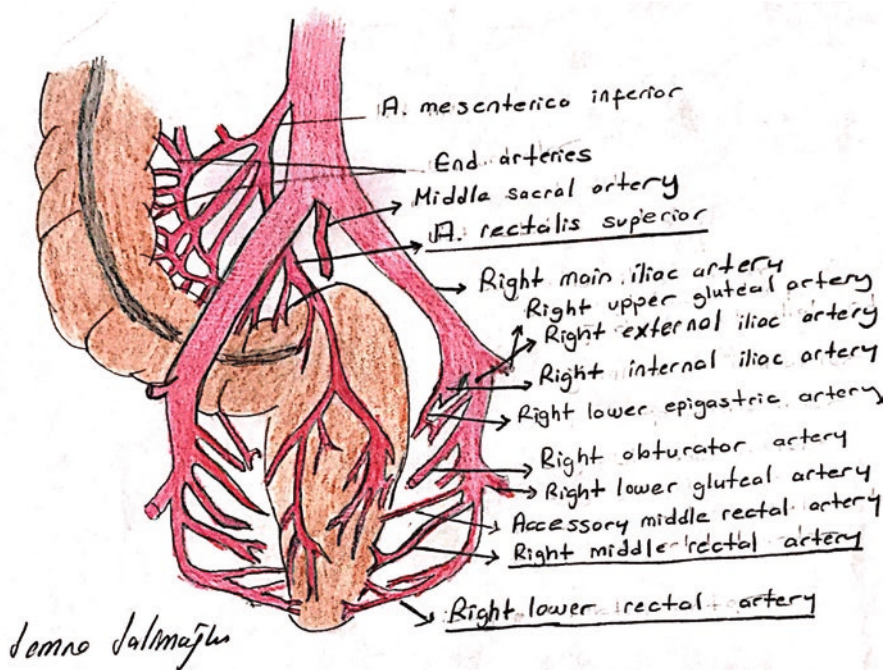 A. mesenterica inferior
End arteries
Middle sacral artery
A. rectalis superior
Right main iliac artery
Right upper gluteal artery
Right external iliac artery
Right internal iliac artery
Right lower epigastric artery
Right obturator artery
Right lower gluteal artery
Accessory middle rectal artery
Right middle rectal artery
Right lower rectal artery